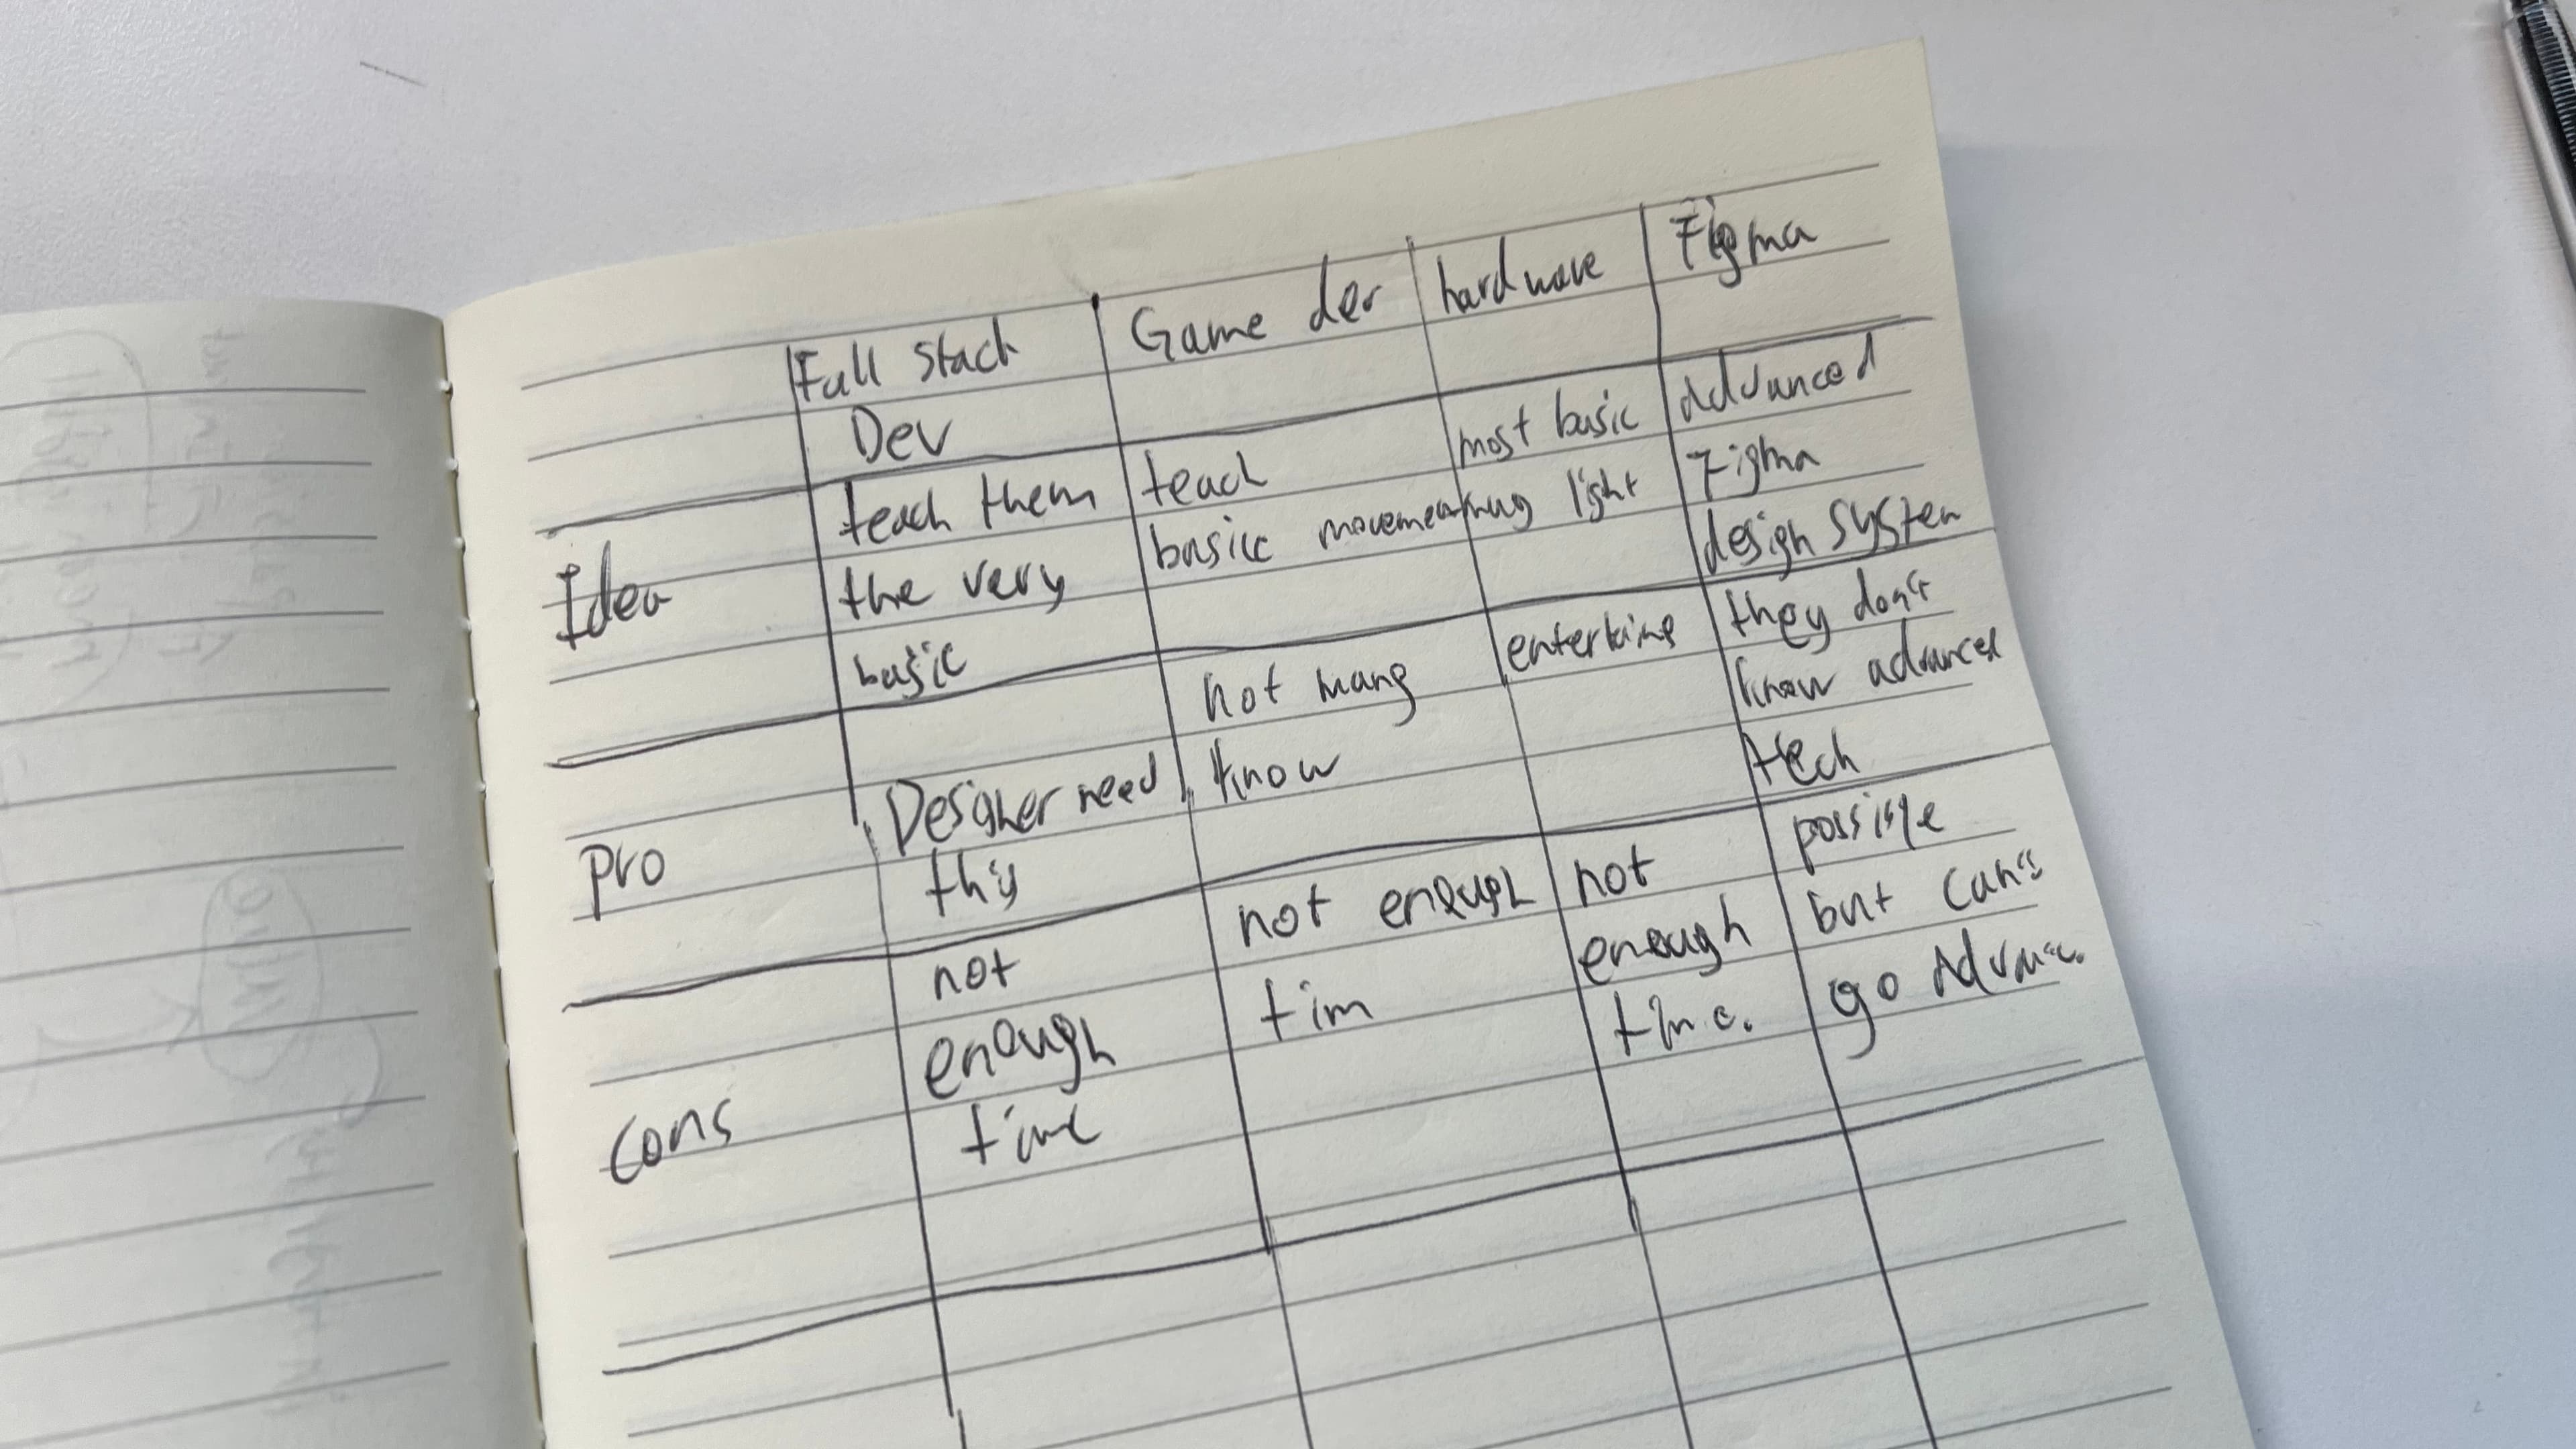 Full Stack
Dev
Game dev
hardware
Figma
Idea
teach them
the very
basic
teach
basicc movement
most basic
light
Advanced
Figma
design system
Pro
Designer need
this
not many
know
entertaine
they don't
know advanced
tech
Cons
not
enough
time
not enough
tim
not
enough
time.
but can't
go Advanc.